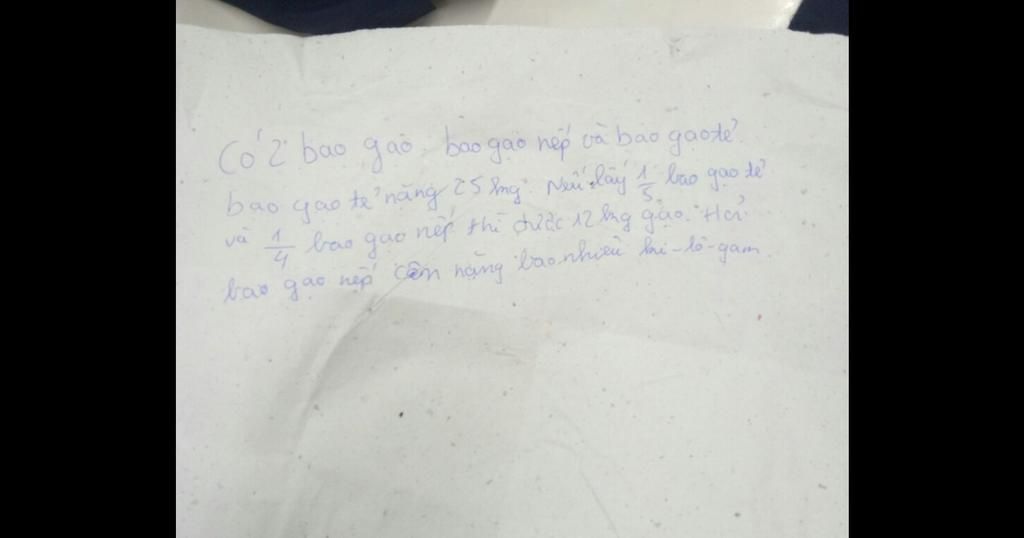 Có 2 bao gạo. bao gạo nếp và bao gạo tẻ.
bao gạo tẻ nặng 25 kg. Nếu lấy 1/5 bao gạo tẻ
và 1/4 bao gạo nếp thì được 12 kg gạo. Hỏi
bao gạo nếp cân nặng bao nhiêu ki-lô-gam.